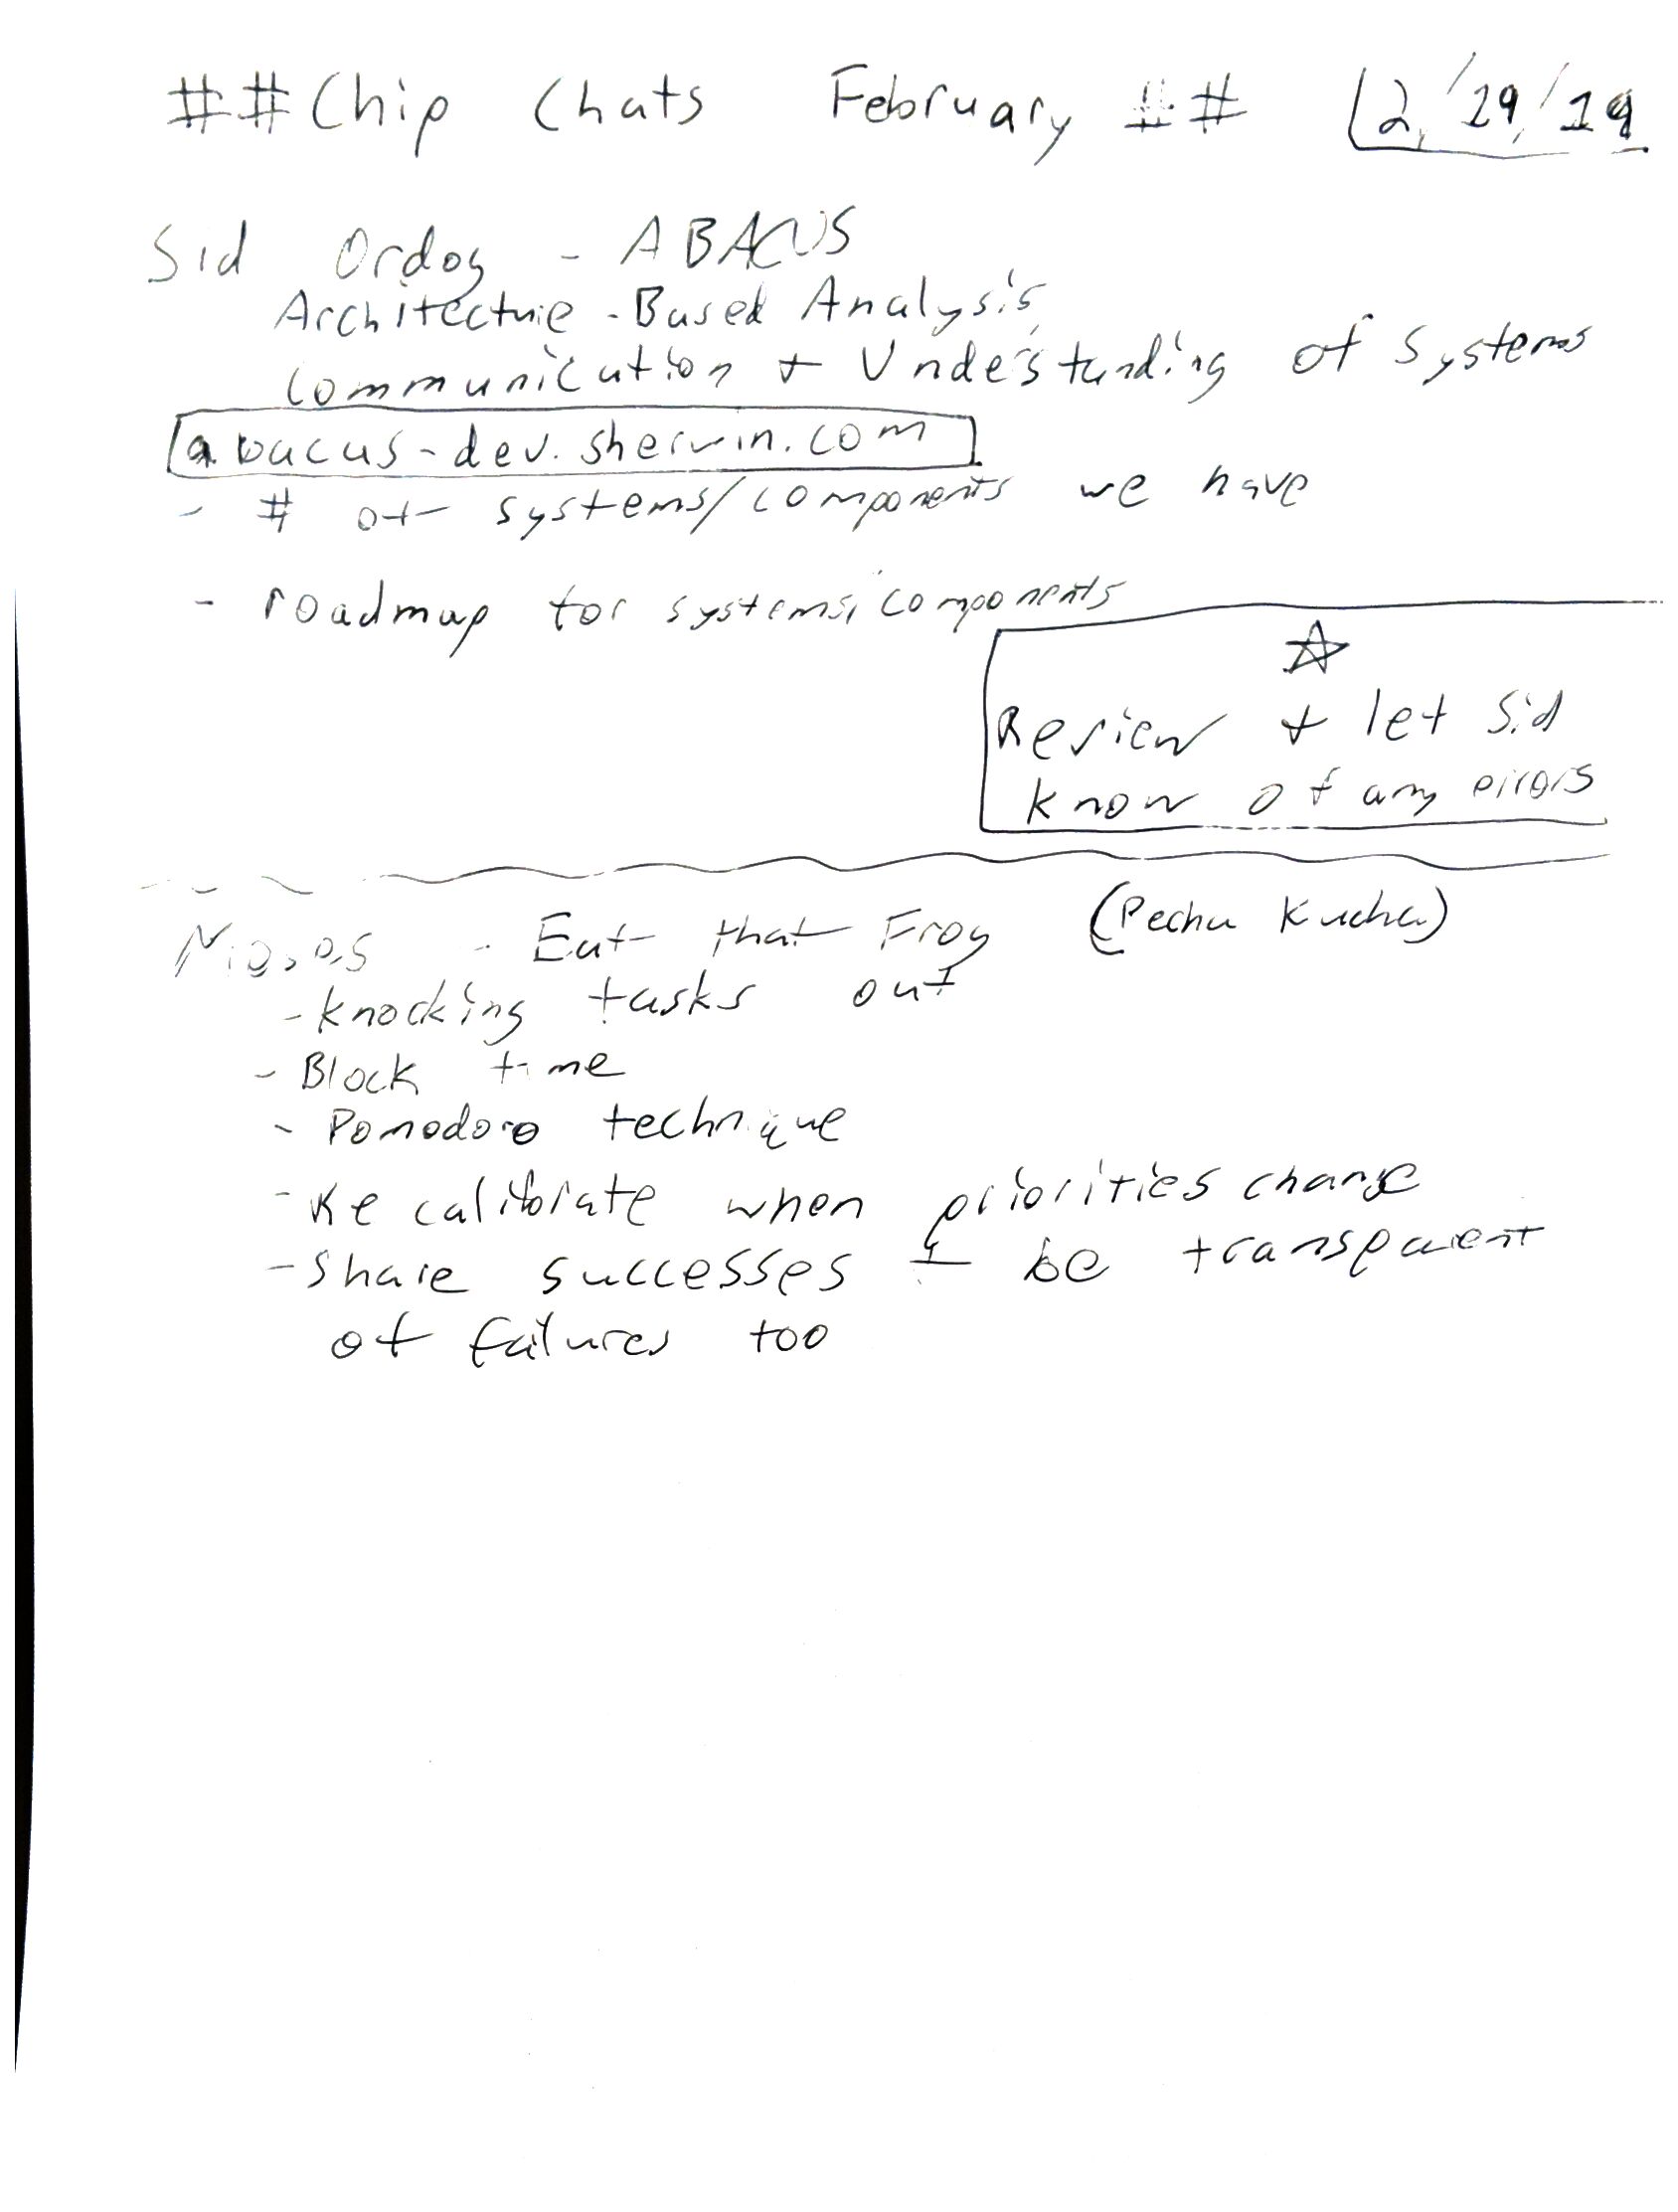 ##Chip Chats February ## 2/29/19
Sid Ordog - ABACUS
Architecture-Based Analysis
Communication + Understanding of Systems
abacus-dev.sherwin.com
- # of systems/components we have
- roadmap for systems/components
Review + let Sid
know of any errors
- Eat that Frog (Pecha Kucha)
- Knocking tasks out
- Block time
- Pomodoro technique
- Recalibrate when priorities change
- Share successes + be transparent
of failures too